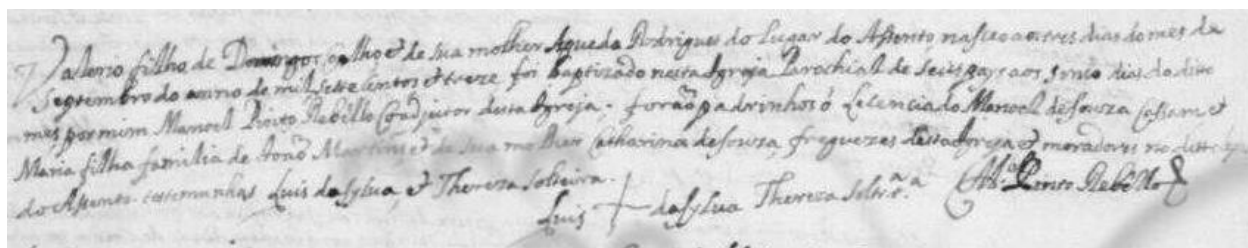 Valerio filho de Domingos Coelho et de sua molher Agueda Rodrigues do lugar do Assento, nasceo aos tres dias do mes de
Septembro do anno de mil sete centos et treze foi baptizado nesta Igreja Parochial de aos sinco dias do ditto
mes, por mim Manoel Pinto Rebello Coadjutor desta Igreja. forão padrinhos o Lecenciado Manoel de Souza et
Maria filha familia de João Martins, et de sua molher Catharina de Souza, freguezes desta Igreja et moradores no ditto
do Assento. testemunhas Luis da Sylva, et Thereza Solteira.
Luis + da Sylva Thereza Soltr.ª M.el Pinto Rebello